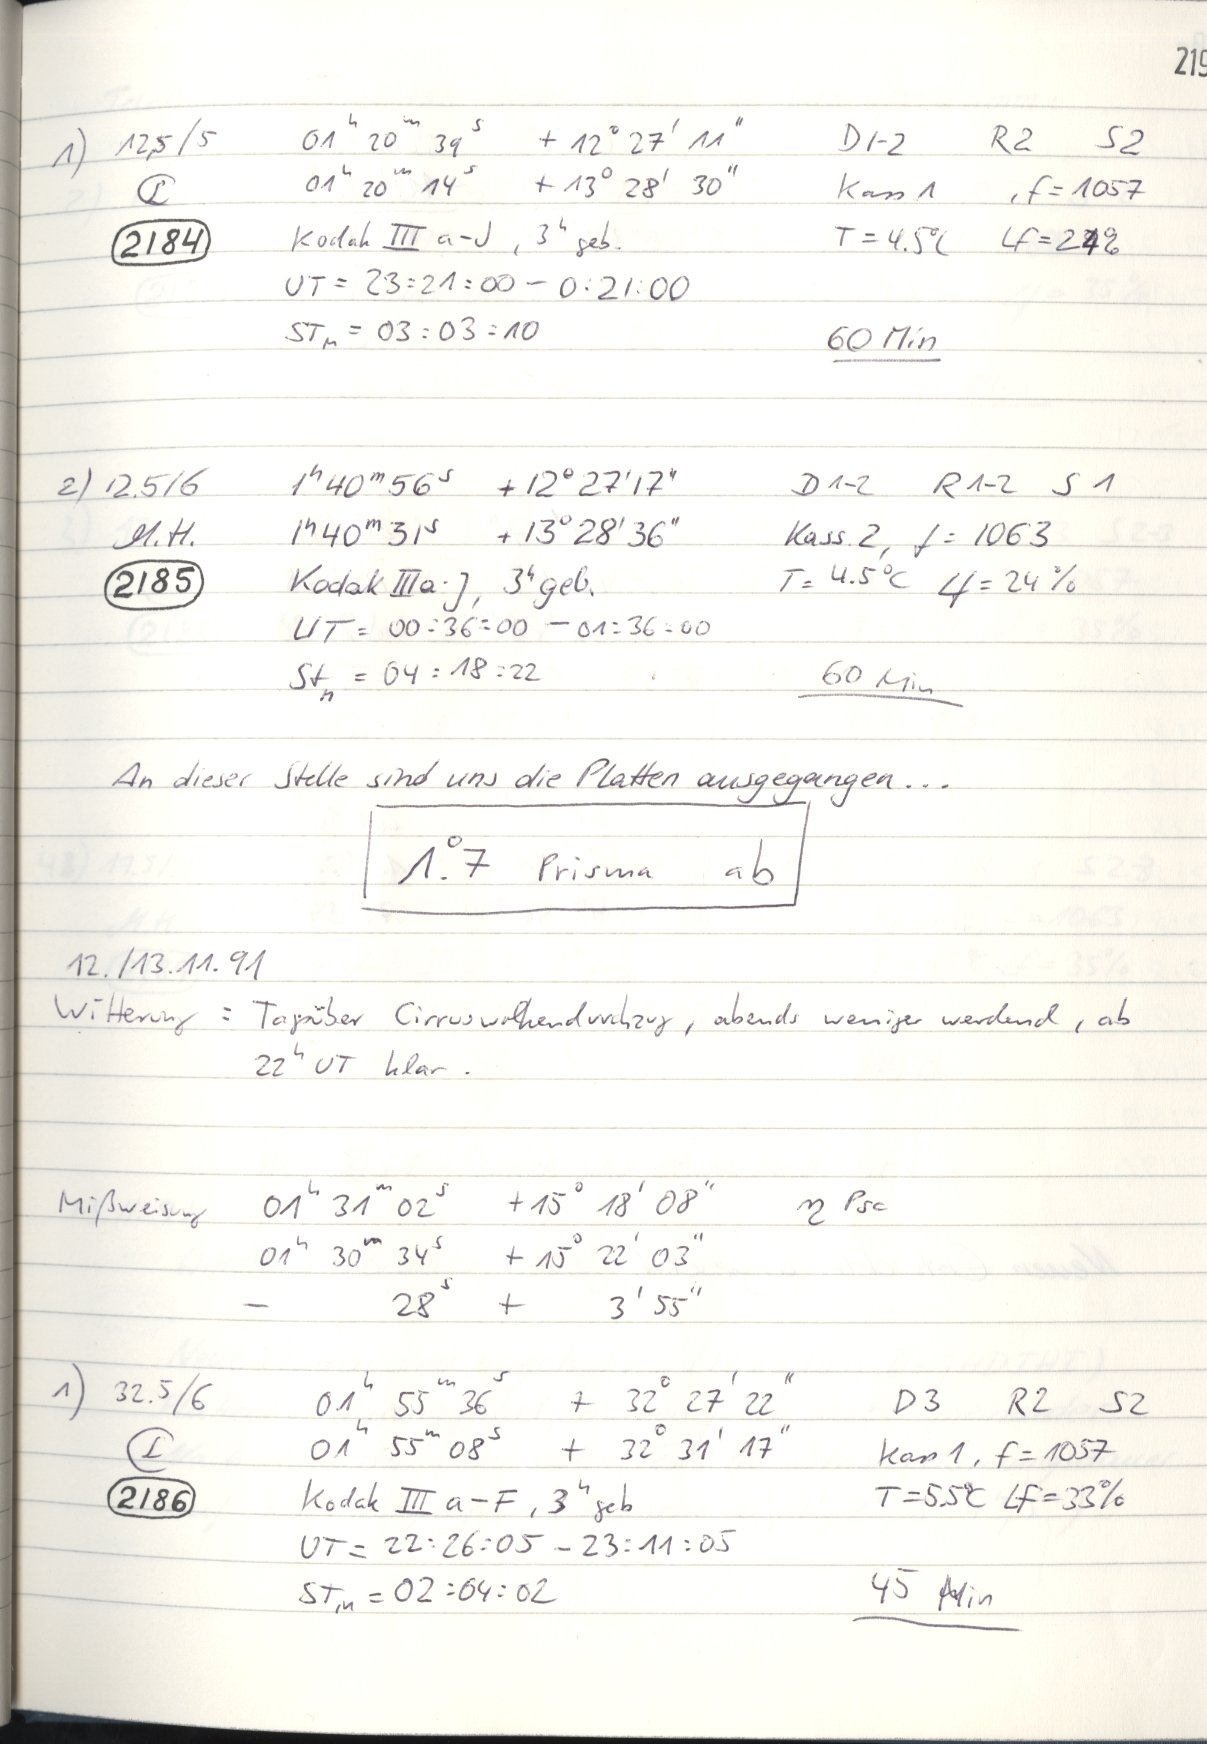 219
1) 12,5/5 01ʰ 20ᵐ 39ˢ + 12° 27' 11" D1-2 R2 S2
I 01ʰ 20ᵐ 14ˢ + 13° 28' 30" Kass 1 , f = 1057
2184 Kodak III a-J , 3ʰ geb. T = 4.5°C Lf = 24%
UT = 23:21:00 - 0:21:00
STm = 03:03:10 60 Min
2) 12.5/6 1ʰ40ᵐ56ˢ +12° 27'17" D1-2 R1-2 S1
M.H. 1ʰ40ᵐ31ˢ +13° 28'36" Kass. 2, f = 1063
2185 Kodak IIIa-J, 3ʰ geb. T = 4.5°C Lf = 24%
UT = 00:36:00 - 01:36:00
Stm = 04:18:22 60 Min
An dieser Stelle sind uns die Platten ausgegangen...
1.°7 Prisma ab
12./13.11.91
Witterung : Tagsüber Cirruswolkendurchzug, abends weniger werdend, ab
22ʰ UT klar.
Mißweisung 01ʰ 31ᵐ 02ˢ +15° 18' 08" η Psc
01ʰ 30ᵐ 34ˢ + 15° 22' 03"
- 28ˢ + 3' 55"
1) 32.5/6 01ʰ 55ᵐ 36ˢ + 32° 27' 22" D3 R2 S2
I 01ʰ 55ᵐ 08ˢ + 32° 31' 17" Kass 1, f = 1057
2186 Kodak III a-F, 3ʰ geb T = 5.5°C Lf = 33%
UT = 22:26:05 - 23:11:05
STm = 02:04:02 45 Min